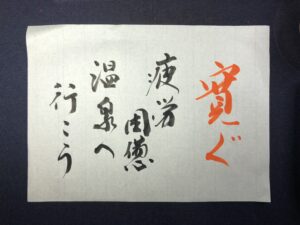 寛ぐ
疲労
困憊
温泉へ
行こう